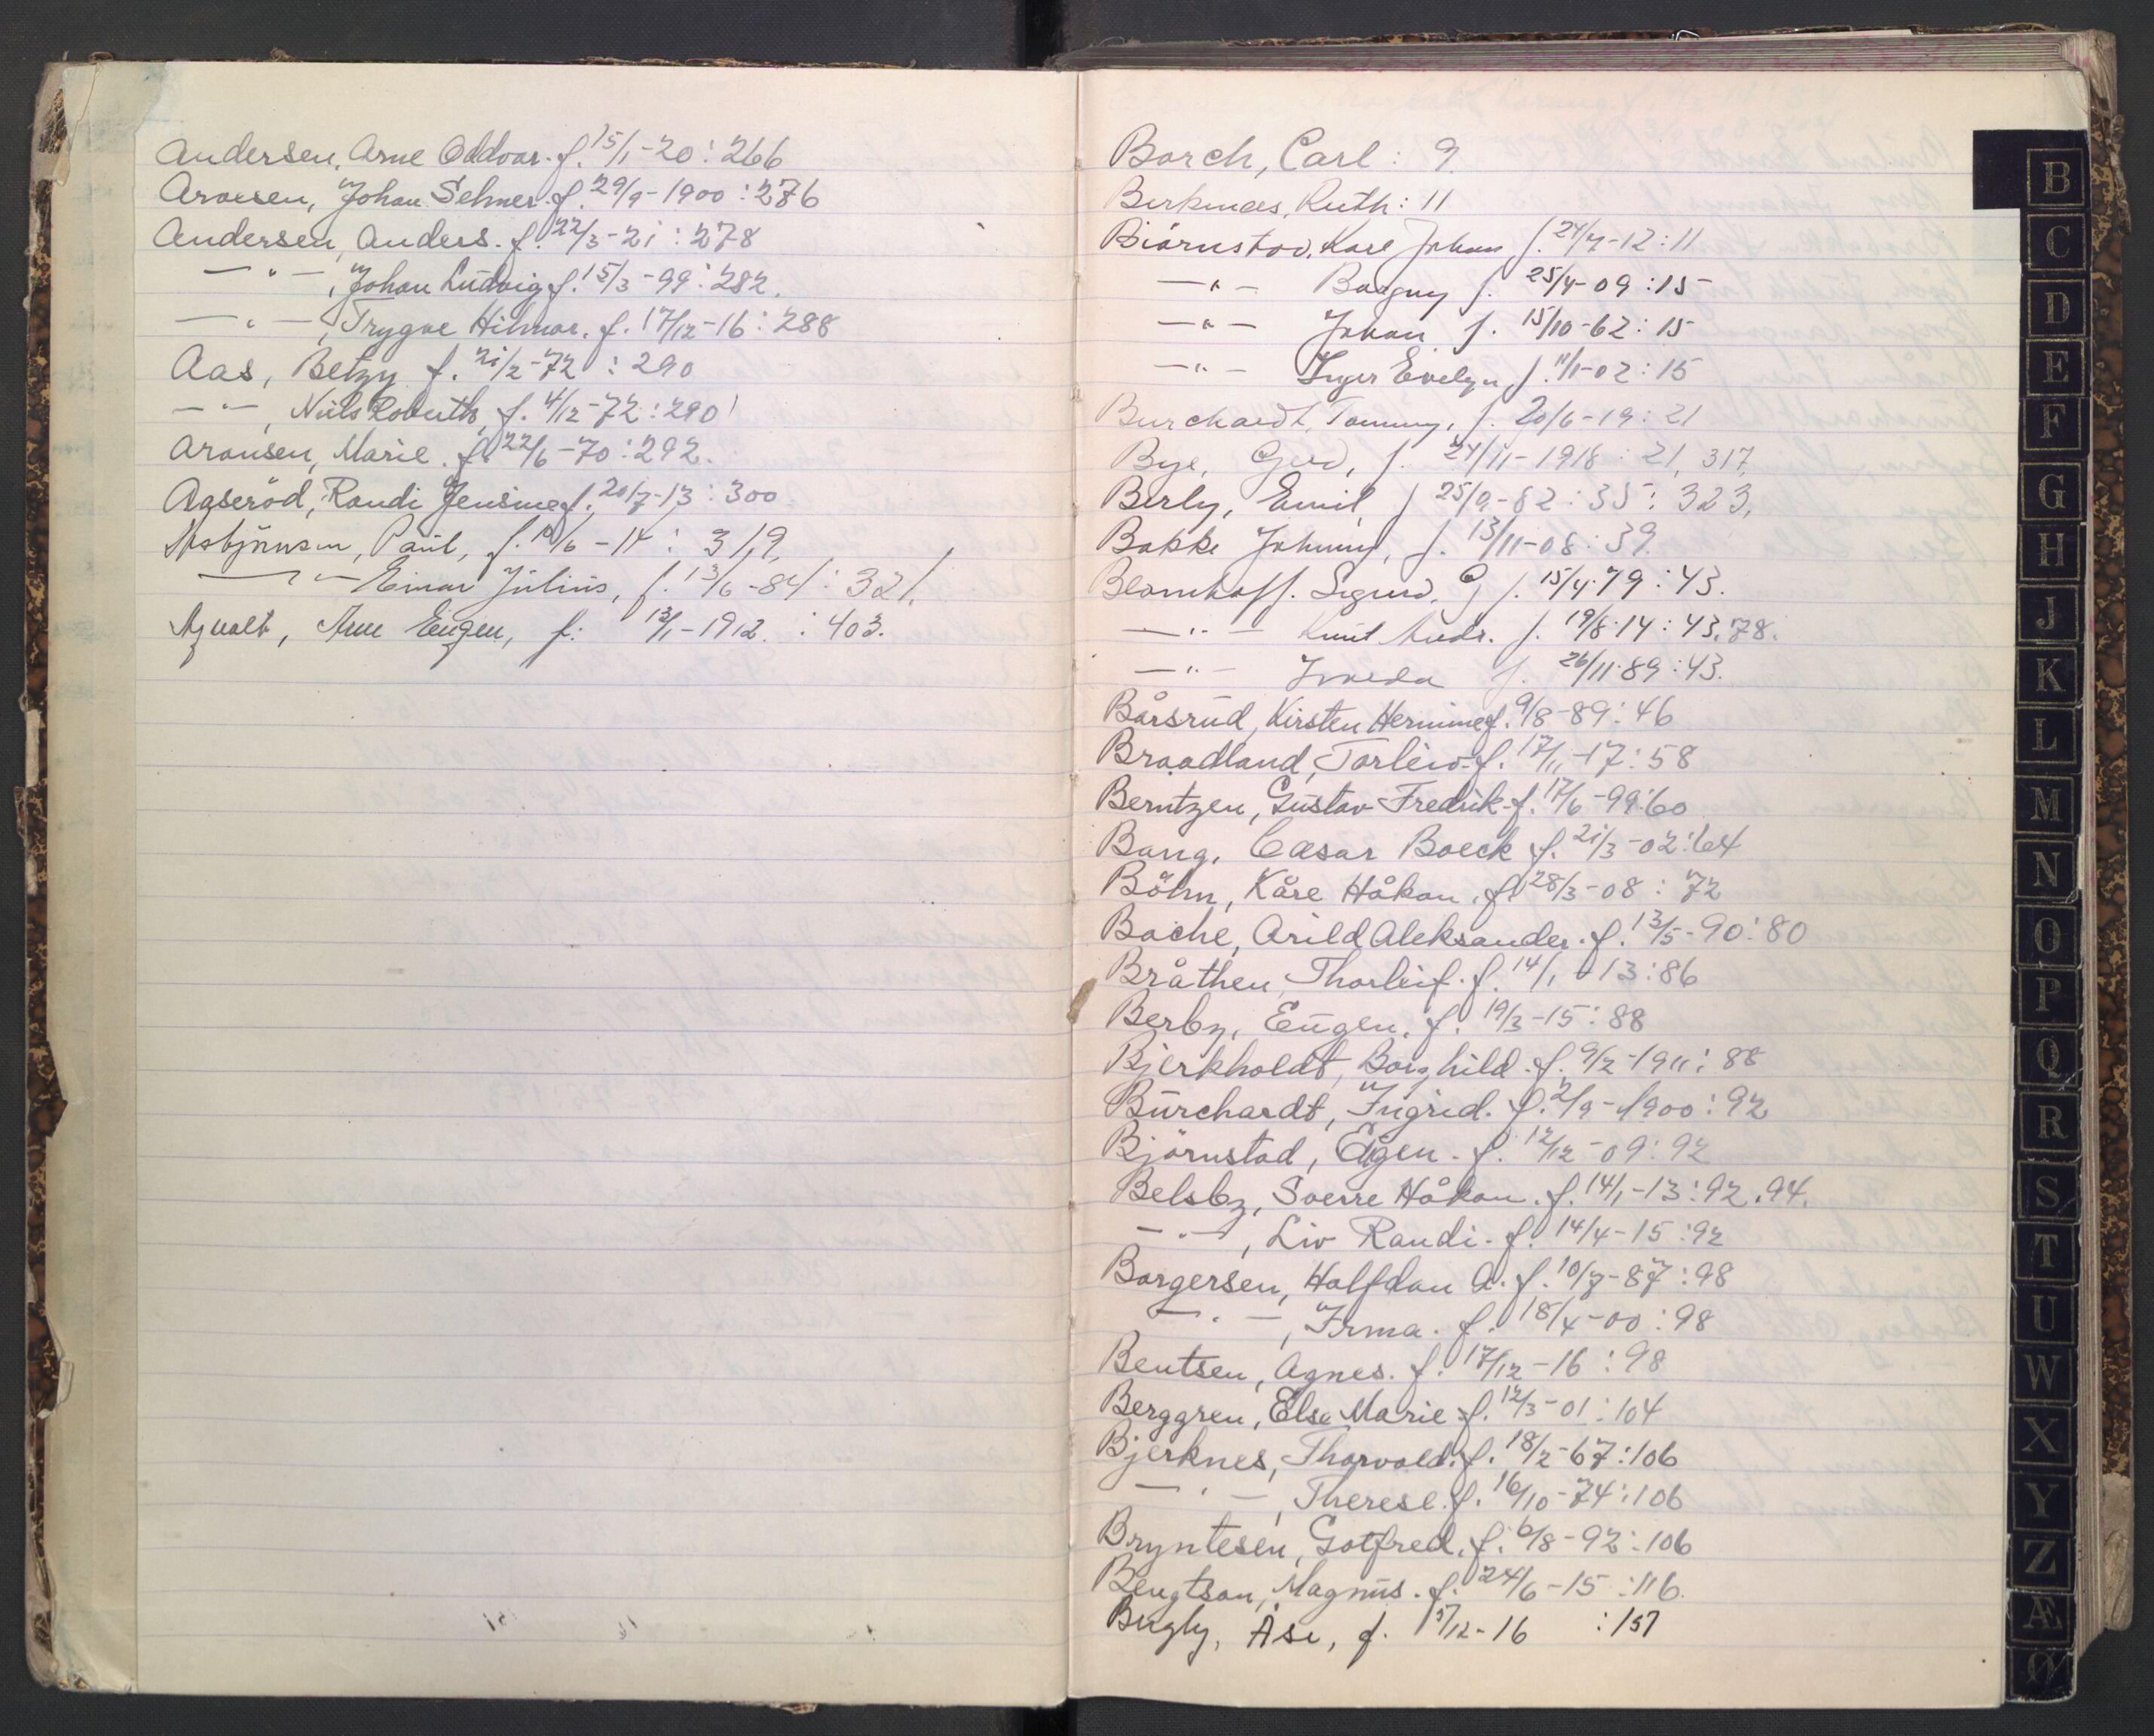 Andersen, Arne Oddvar. f. 15/1-20: 266
Aroesen, Johan Selmer. f. 29/9-1900: 276
Andersen, Anders. f. 22/3-21: 278
—"—, Johan Ludvig f. 15/3-99: 282.
—"—, Trygve Hilmar. f. 17/12-16: 288
Aas, Betzy f. 21/2-72: 290
—"—, Niels f. 4/12-72: 290
Aronsen, Marie. f. 22/6-70: 292.
Agseröd, Randi Jensine f. 20/7-13: 300
Asbjörnsen, Paul, f. /6-14: 319,
—"— Einar Julius, f. 13/6-84: 321,
Arne Eugen, f: 13/1-1912: 403.
Borch, Carl: 9.
Birkenes, Ruth: 11
Biörnstad, Kare Johan f. 24/7-12: 11
—"— Borgny f. 25/4-09: 15
—"— Johan f. 15/10-62: 15
—"— Inger Evelyn f. 11/1-02: 15
Burchardt, Tommy, f. 20/6-19: 21
Bye, Gerd, f. 24/11-1918: 21, 317,
Berly, Emil, f 25/9-82: 35: 323,
Bakke Johnny, f. 13/11-08: 39.
Blomhoff. Sigurd. G f. 15/4-79: 43.
—"— Knut Andr. f. 19/8-14: 43.78.
—"— f. 26/11-89: 43.
Bårsrud, Kirsten Hermine f. 9/8-89: 46
Braadland, Torleiv. f. 17/11-17: 58
Berntzen, Gustav Fredrik. f. 17/6-99: 60
Bang, Cæsar Boeck f. 21/3-02: 64
Böhn, Kåre Håkon. f. 28/3-08: 72
Bache, Arild Aleksander. f. 13/5-90: 80
Bråthen, Thorleif. f. 14/1-13: 86
Berby, Eugen. f. 19/3-15: 88
Bjerkholdt, Borghild. f. 9/2-1911: 88
Burchardt, Ingrid. f. 2/9-1900: 92
Björnstad, Eigen. f. 12/12-09: 92
Belsby, Sverre Håkon. f. 14/1-13: 92.94.
—"—, Liv Randi. f. 14/4-15: 92
Borgersen, Halfdan A. f. 10/7-87: 98
—"—, Irma. f. 18/4-00: 98
Bentsen, Agnes. f. 17/12-16: 98
Berggren, Else Marie f. 12/3-01: 104
Bjerknes, Thorvald. f. 18/2-67: 106
—"—, Therese. f. 16/10-74: 106
Bryntesen, Gotfred. f. 6/8-92: 106
Bengtson, Magnus. f. 24/6-15: 116.
Bugly, Åse, f. /12-16: 157
B
C
D
E
F
G
H
J
K
L
M
N
O
P
Q
R
S
T
U
W
X
Y
Z
Æ
Ø